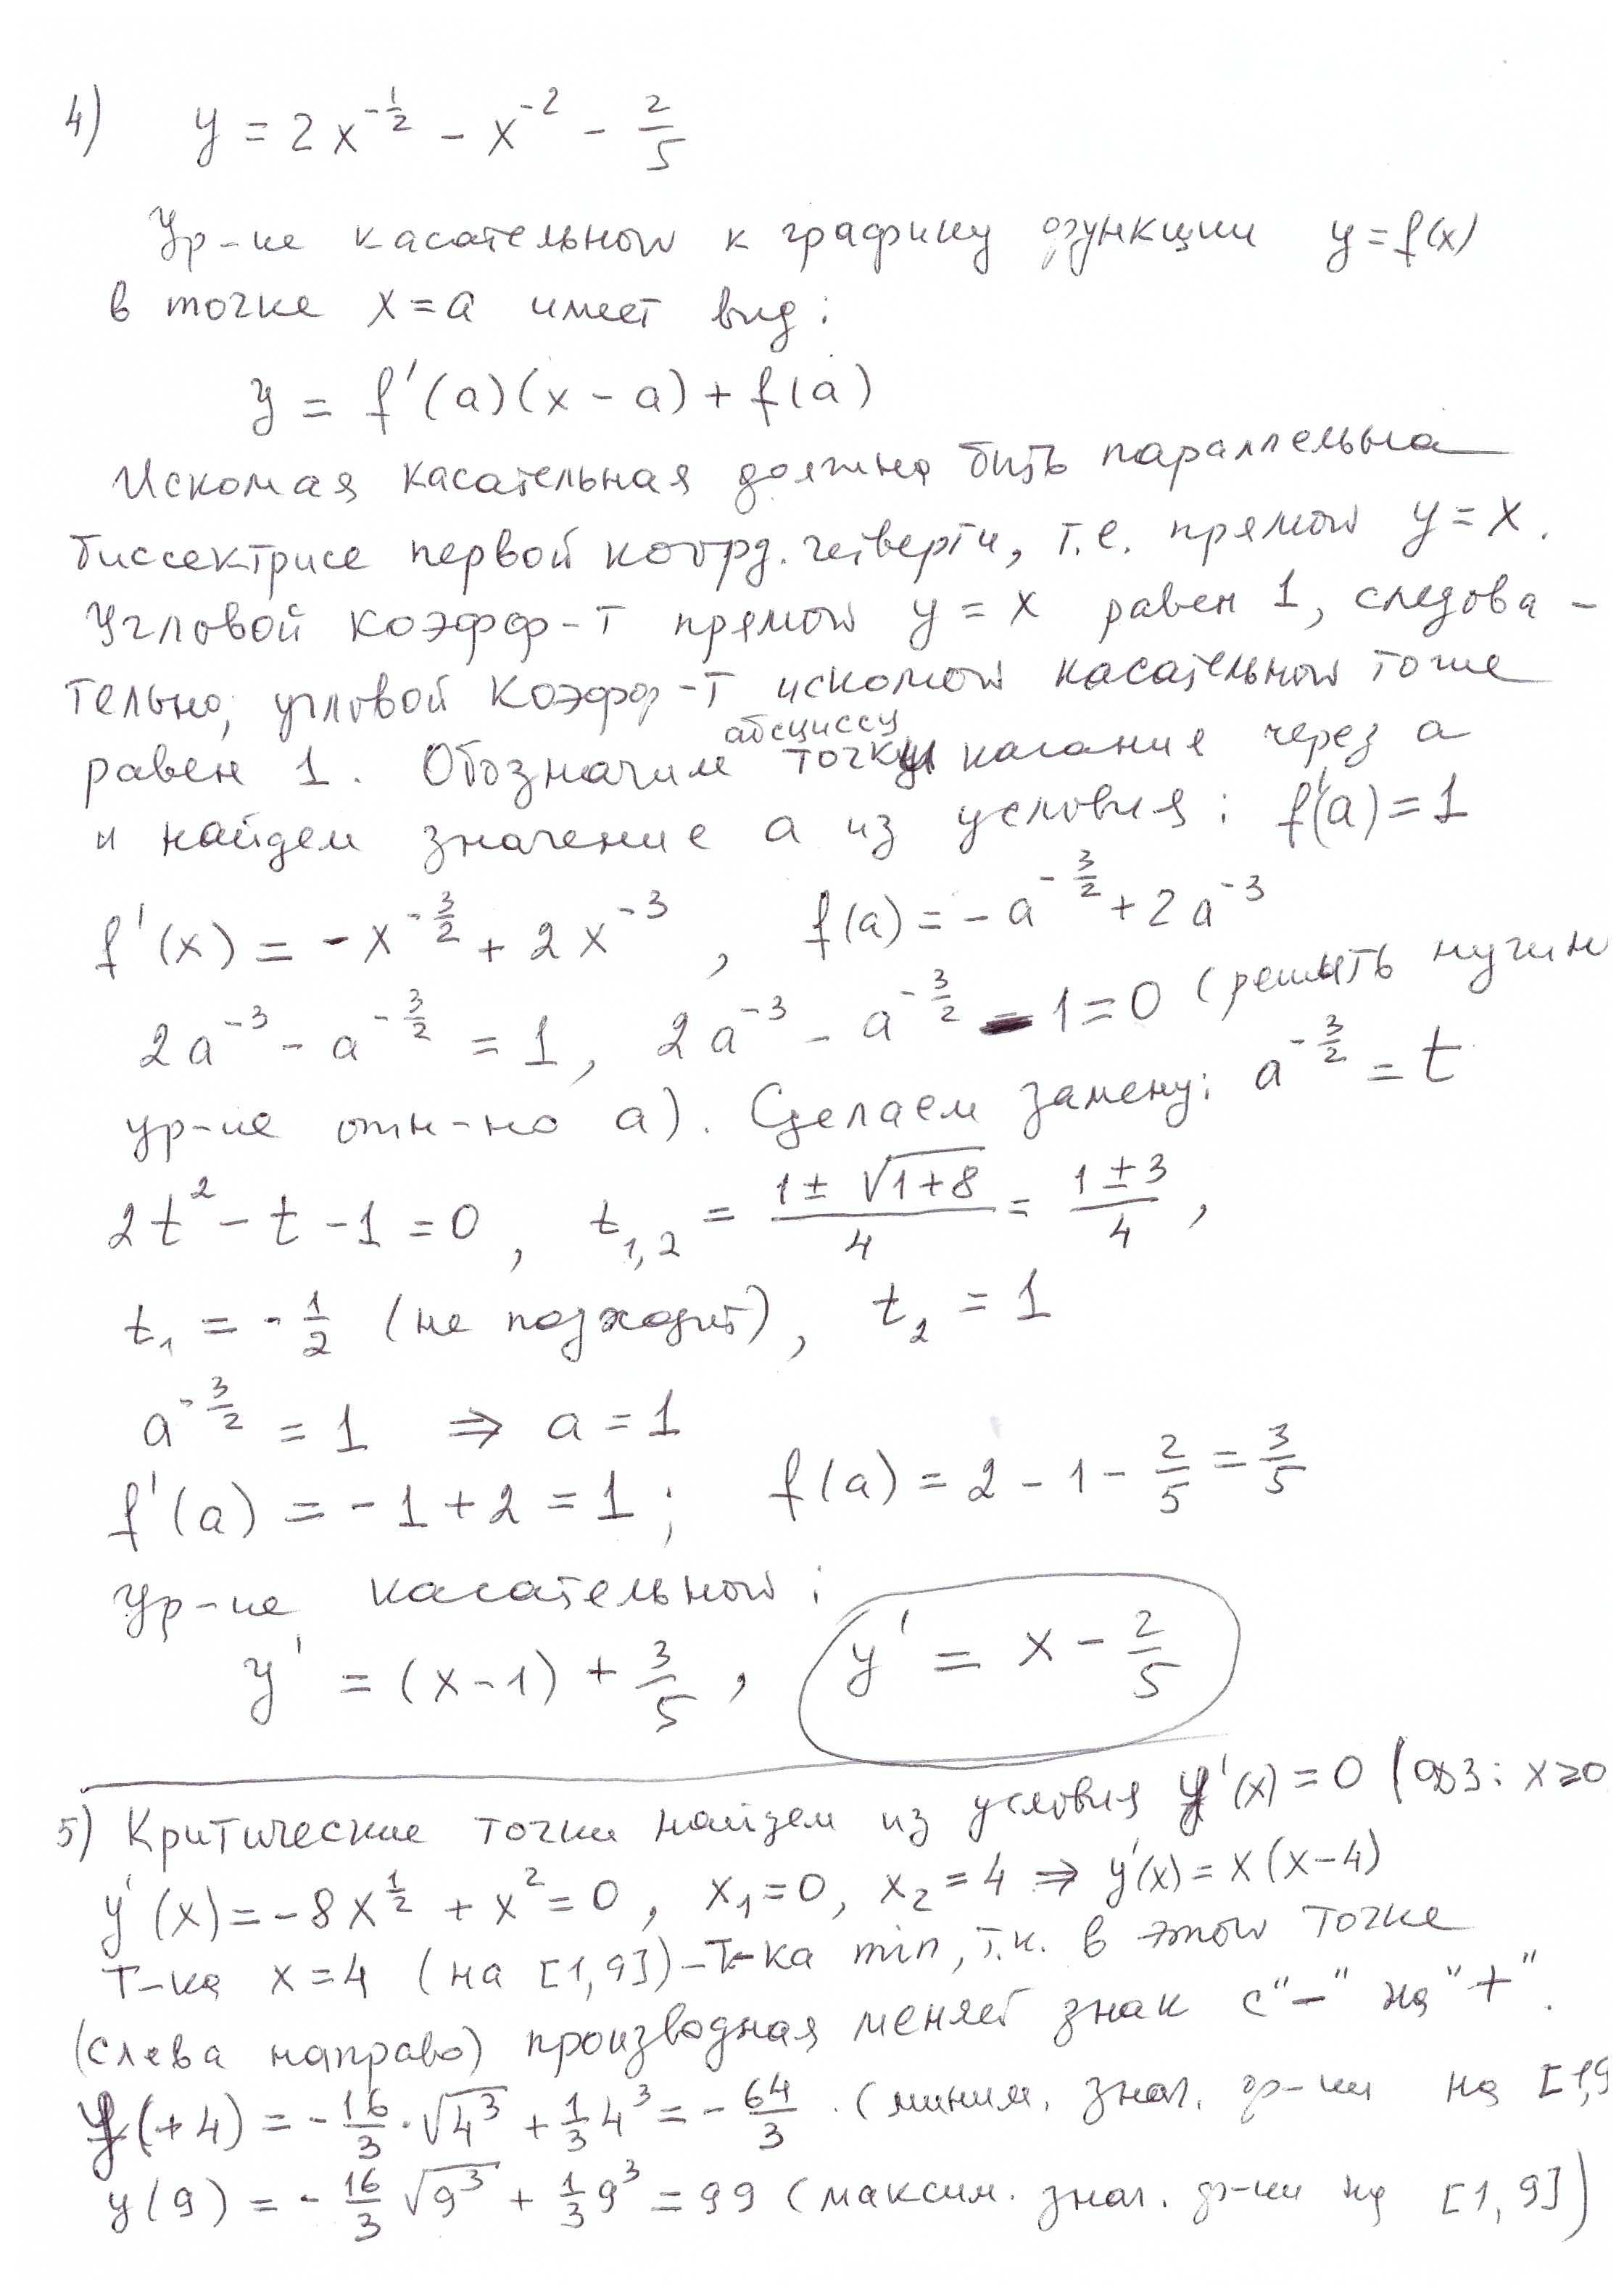 4) y = 2x^{-1/2} - x^{-2} - 2/5
Ур-ие касательной к графику функции y=f(x)
в точке x=a имеет вид:
y = f'(a)(x-a)+f(a)
Искомая касательная должна быть параллельна
биссектрисе первой коорд. четверти, т.е. прямой y=x.
Угловой коэфф-т прямой y=x равен 1, следова-
тельно, угловой коэфф-т искомой касательной тоже
абсциссу
равен 1. Обозначим точки касания через a
и найдем значение a из условия: f'(a)=1
f'(x) = -x^{-3/2} + 2x^{-3}, f(a) = -a^{-3/2} + 2a^{-3}
2a^{-3} - a^{-3/2} = 1, 2a^{-3} - a^{-3/2} - 1 = 0 (решить нужно
ур-ие отн-но a). Сделаем замену: a^{-3/2} = t
2t^2 - t - 1 = 0, t_{1,2} = (1 ± √(1+8))/4 = (1 ± 3)/4,
t_1 = -1/2 (не подходит), t_2 = 1
a^{-3/2} = 1 ⇒ a = 1
f'(a) = -1+2 = 1; f(a) = 2 - 1 - 2/5 = 3/5
Ур-ие касательной:
y' = (x-1) + 3/5, y' = x - 2/5
5) Критические точки найдем из условия y'(x)=0 (ОДЗ: x≥0
y'(x) = -8x^{1/2} + x^2 = 0, x_1=0, x_2=4 ⇒ y'(x)=x(x-4)
Т-ка x=4 (на [1,9]) - т-ка min, т.к. в этой точке
(слева направо) производная меняет знак с "-" на "+".
y(+4) = -16/3·√4^3 + 1/3 4^3 = -64/3. (миним. знач. ф-ии на [1,9
y(9) = -16/3 √9^3 + 1/3 9^3 = 99 (максим. знач. ф-ии на [1,9])